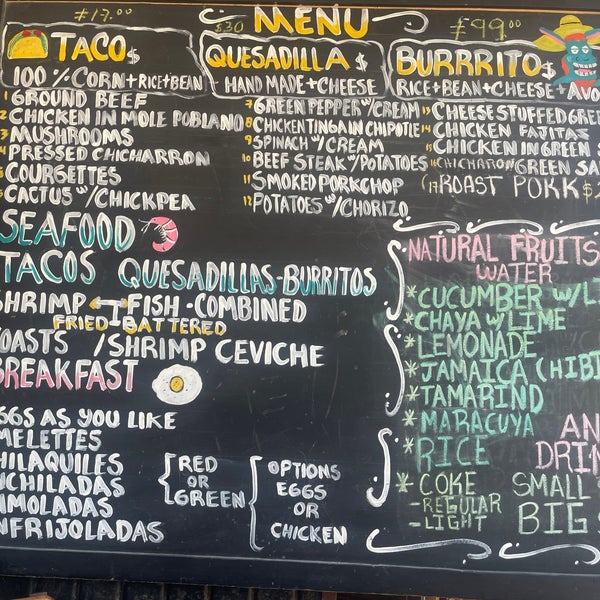 $17.00
$30
MENU
$99.00
TACO$
100% CORN+RICE+BEAN
QUESADILLA $
HAND MADE+CHEESE
BURRRITO$
RICE+BEAN+CHEESE+AVO
1 GROUND BEEF
2 CHICKEN IN MOLE POBLANO
3 MUSHROOMS
4 PRESSED CHICHARRON
5 COURGETTES
6 CACTUS W/CHICKPEA
7 GREEN PEPPER W/CREAM
8 CHICKEN TINGA IN CHIPOTLE
9 SPINACH W/CREAM
10 BEEF STEAK W/POTATOES
11 SMOKED PORKCHOP
12 POTATOES W/CHORIZO
13 CHEESE STUFFED GREE
14 CHICKEN FAJITAS
15 CHICKEN IN GREEN S
16 CHICHARON GREEN SA
(17 ROAST PORK $
SEAFOOD
TACOS QUESADILLAS-BURRITOS
SHRIMP FISH-COMBINED
FRIED-BATTERED
OASTS /SHRIMP CEVICHE
BREAKFAST
GGS AS YOU LIKE
MELETTES
HILAQUILES
NCHILADAS
NMOLADAS
NFRIJOLADAS
RED
OR
GREEN
OPTIONS
EGGS
OR
CHICKEN
NATURAL FRUITS
WATER
*CUCUMBER W/LI
*CHAYA W/LIME
*LEMONADE
*JAMAICA (HIBI
*TAMARIND
*MARACUYA
*RICE
AN
DRIN
*COKE
-REGULAR
-LIGHT
SMALL
BIG